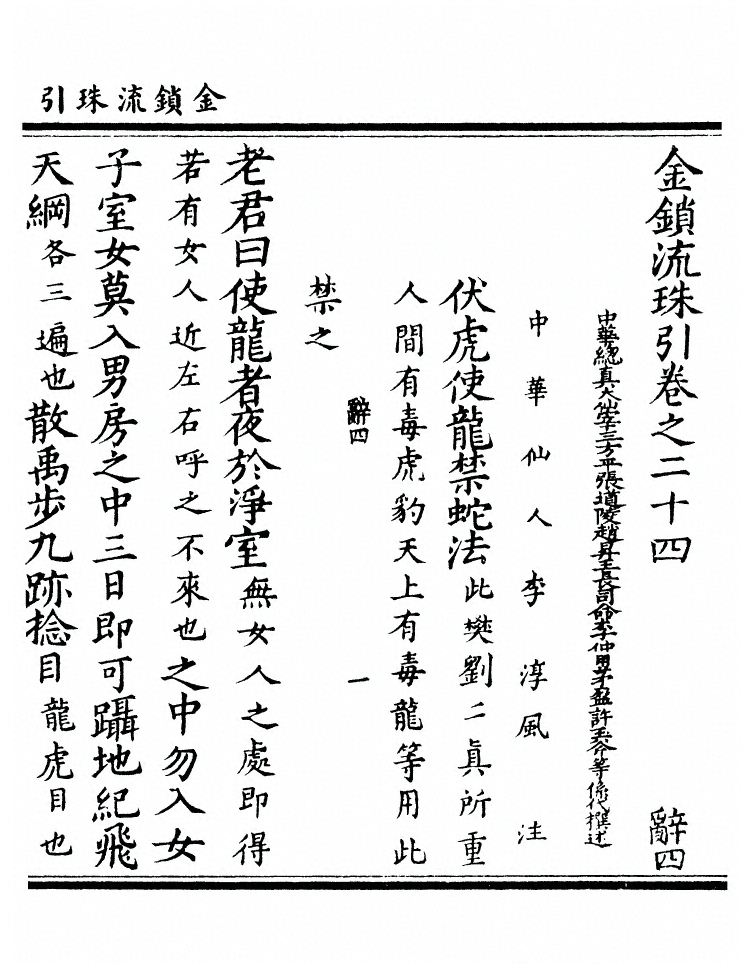 金鎖流珠引
金鎖流珠引卷之二十四
辭四
中華總真大仙宰王方平張道陵趙昇王長司命李仲甫茅盈許玉斧等係代撰述
中華仙人李淳風注
伏虎使龍禁蛇法此樊劉二真所重
人間有毒虎豹天上有毒龍等用此
辭四
一
禁之
老君曰使龍者夜於淨室無女人之處即得
若有女人近左右呼之不來也之中勿入女
子室女莫入男房之中三日即可躡地紀飛
天綱各三遍也散禹步九跡捻目龍虎目也